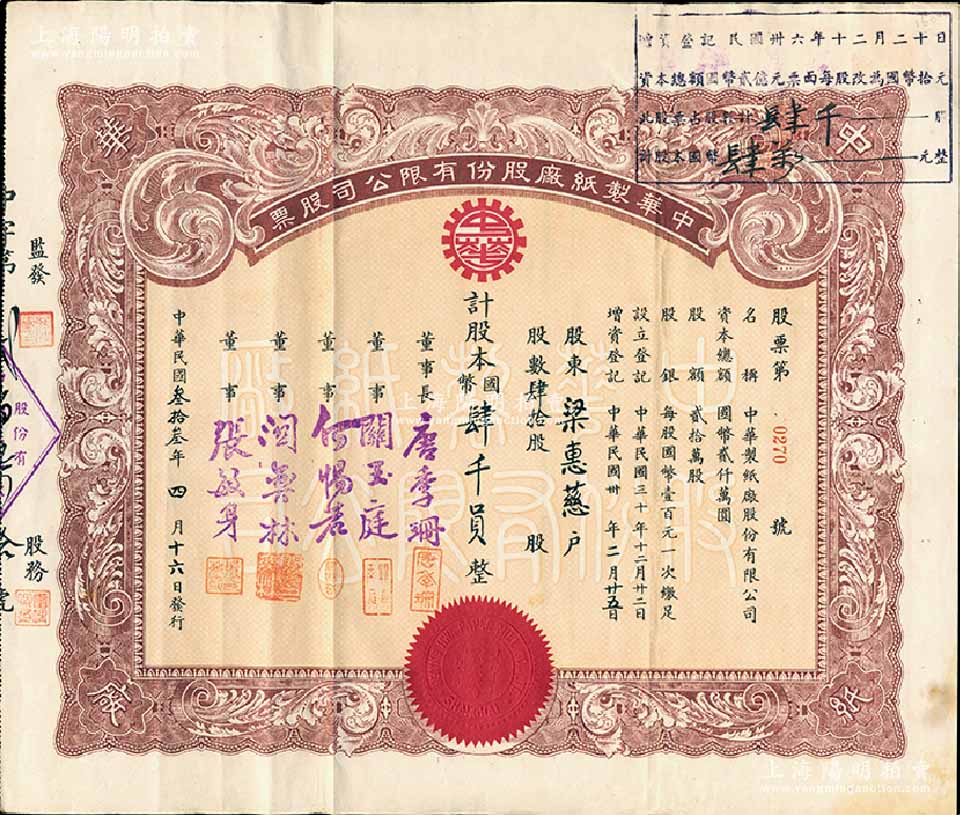 上海陽明拍賣
www.yangmingauction.com
增資登記民國卅六年十二月二十日
資本總額國幣貳億元票面每股改為國幣拾元
此股票占股數計肆千股
計股本國幣肆萬元整
中華
中華製紙廠股份有限公司股票
股票第 0270 號
名稱 中華製紙廠股份有限公司
資本總額 國幣貳仟萬圓
股額 貳拾萬股
股銀 每股國幣壹百元一次繳足
設立登記 中華民國三十年十二月廿二日
增資登記 中華民國卅 年二月廿五日
股東 梁惠慈 戶
股數肆拾股 股
計股本國幣肆千員整
董事長 唐季珊
董事 關玉庭
董事 何惕若
董事
董事
中華民國叁拾叁年 四 月十六日發行
監發
股務
股份有
中華製紙廠
股份有限公司
SHANGHAI
上海陽明拍賣
www.yangmingauction.com
上海陽明拍賣
www.yangmingauction.com